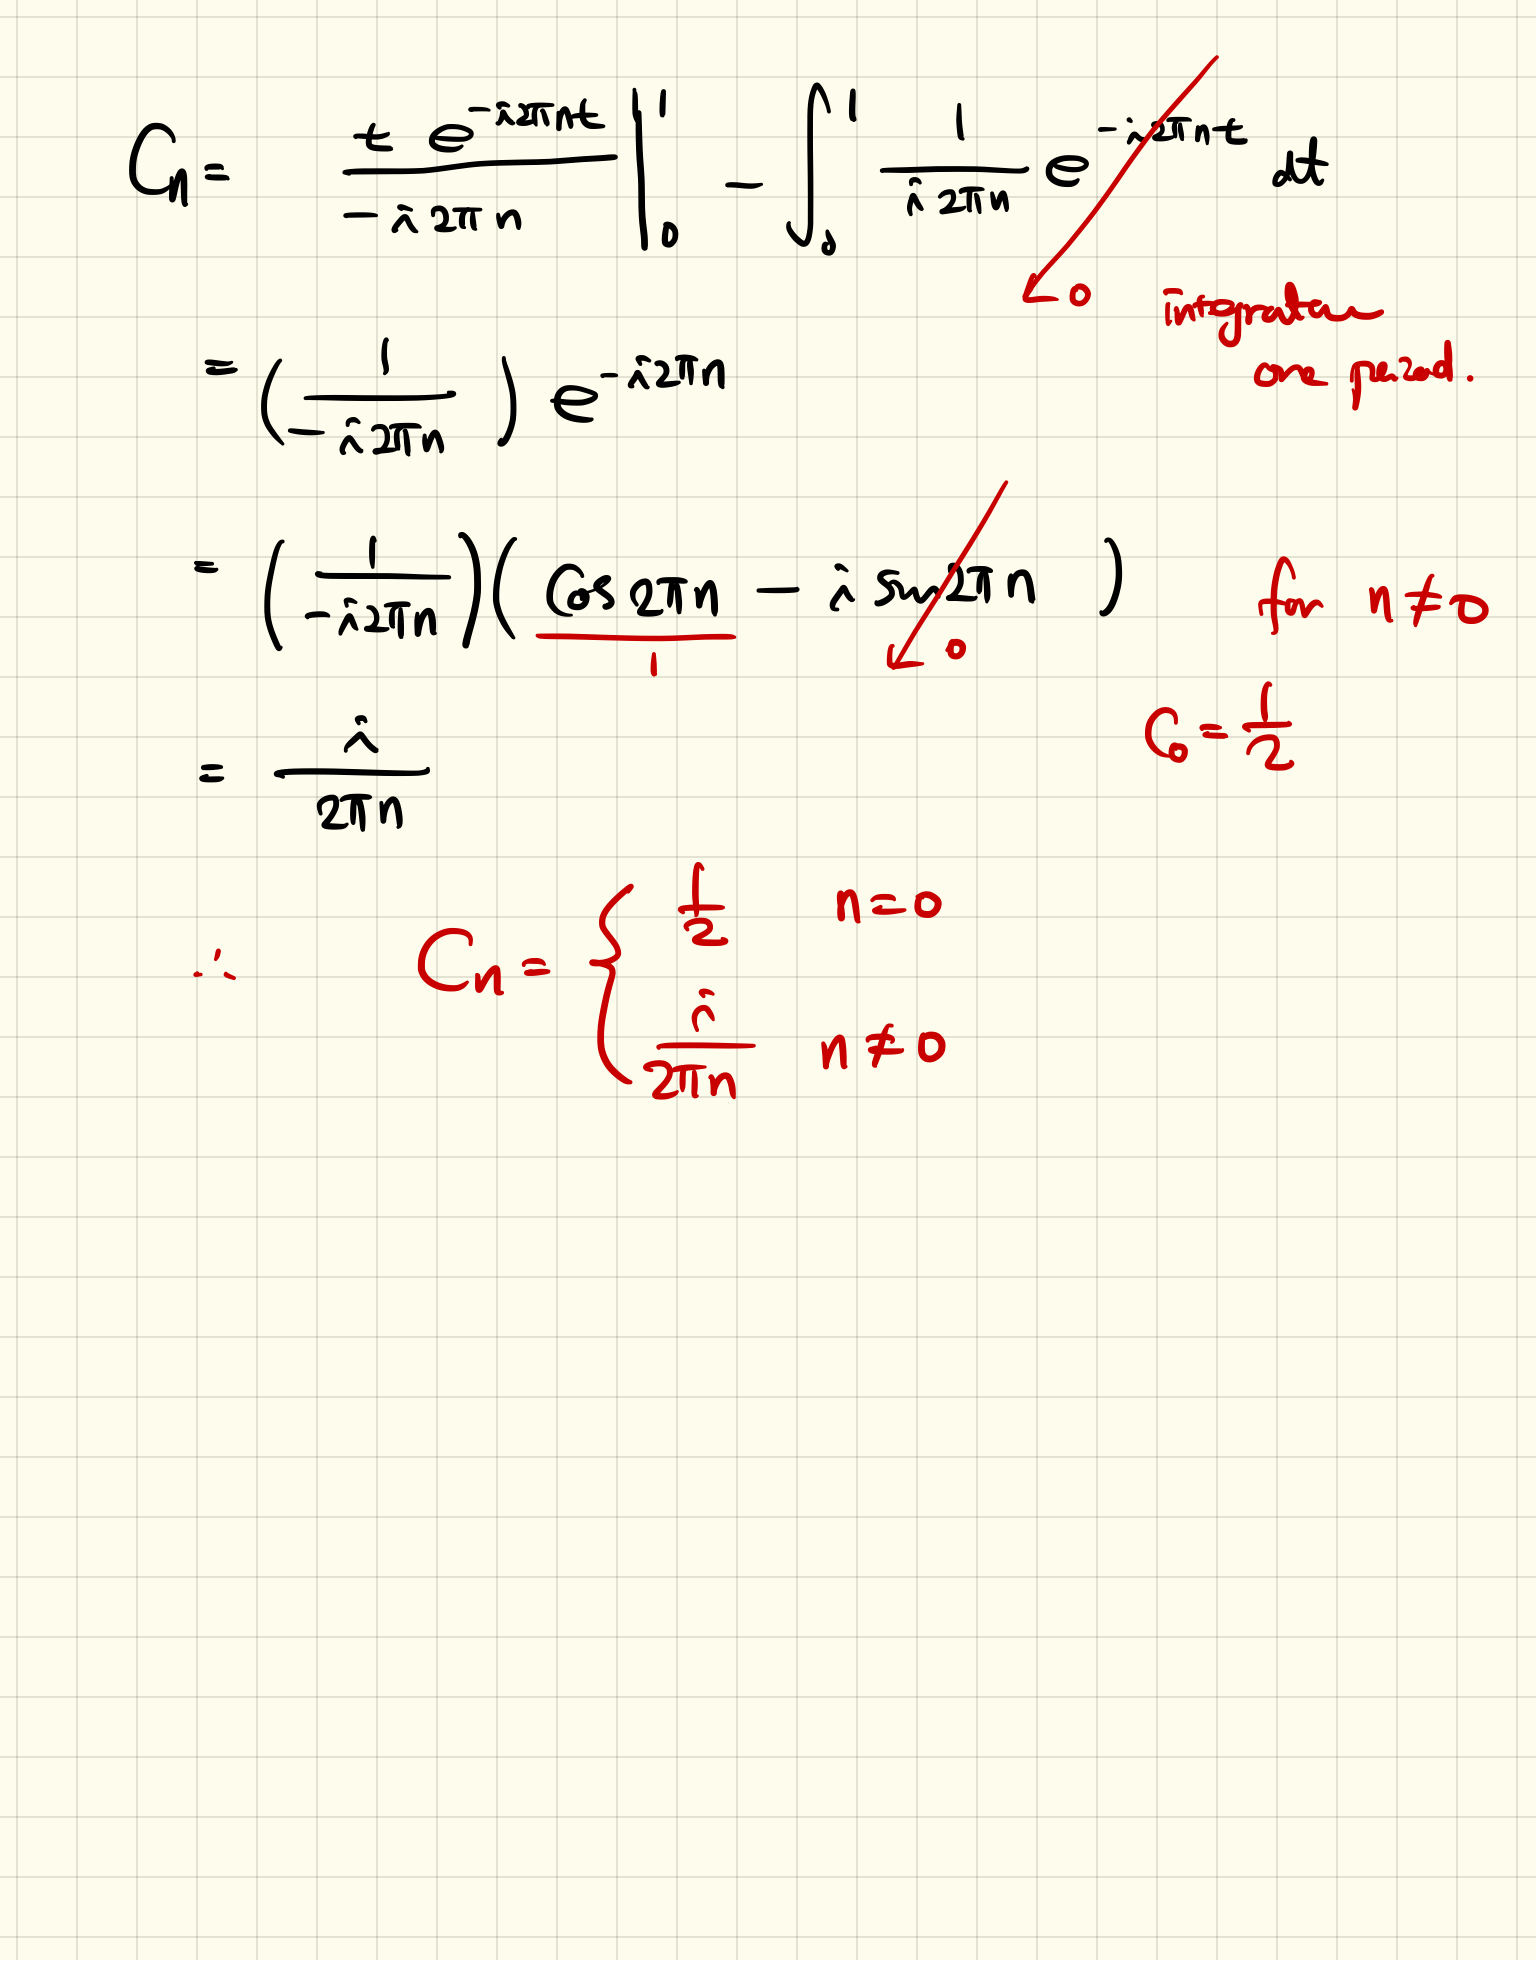 Cₙ = t e^{-i2πnt} / (-i2πn) |₀¹ - ∫₀¹ 1/(i2πn) e^{-i2πnt} dt
0 integration
one period.
= (1/(-i2πn)) e^{-i2πn}
= (1/(-i2πn)) (cos 2πn - i sin 2πn) for n≠0
1 0
= i/(2πn) C₀ = 1/2
∴ Cₙ = { 1/2 n=0
i/(2πn) n≠0